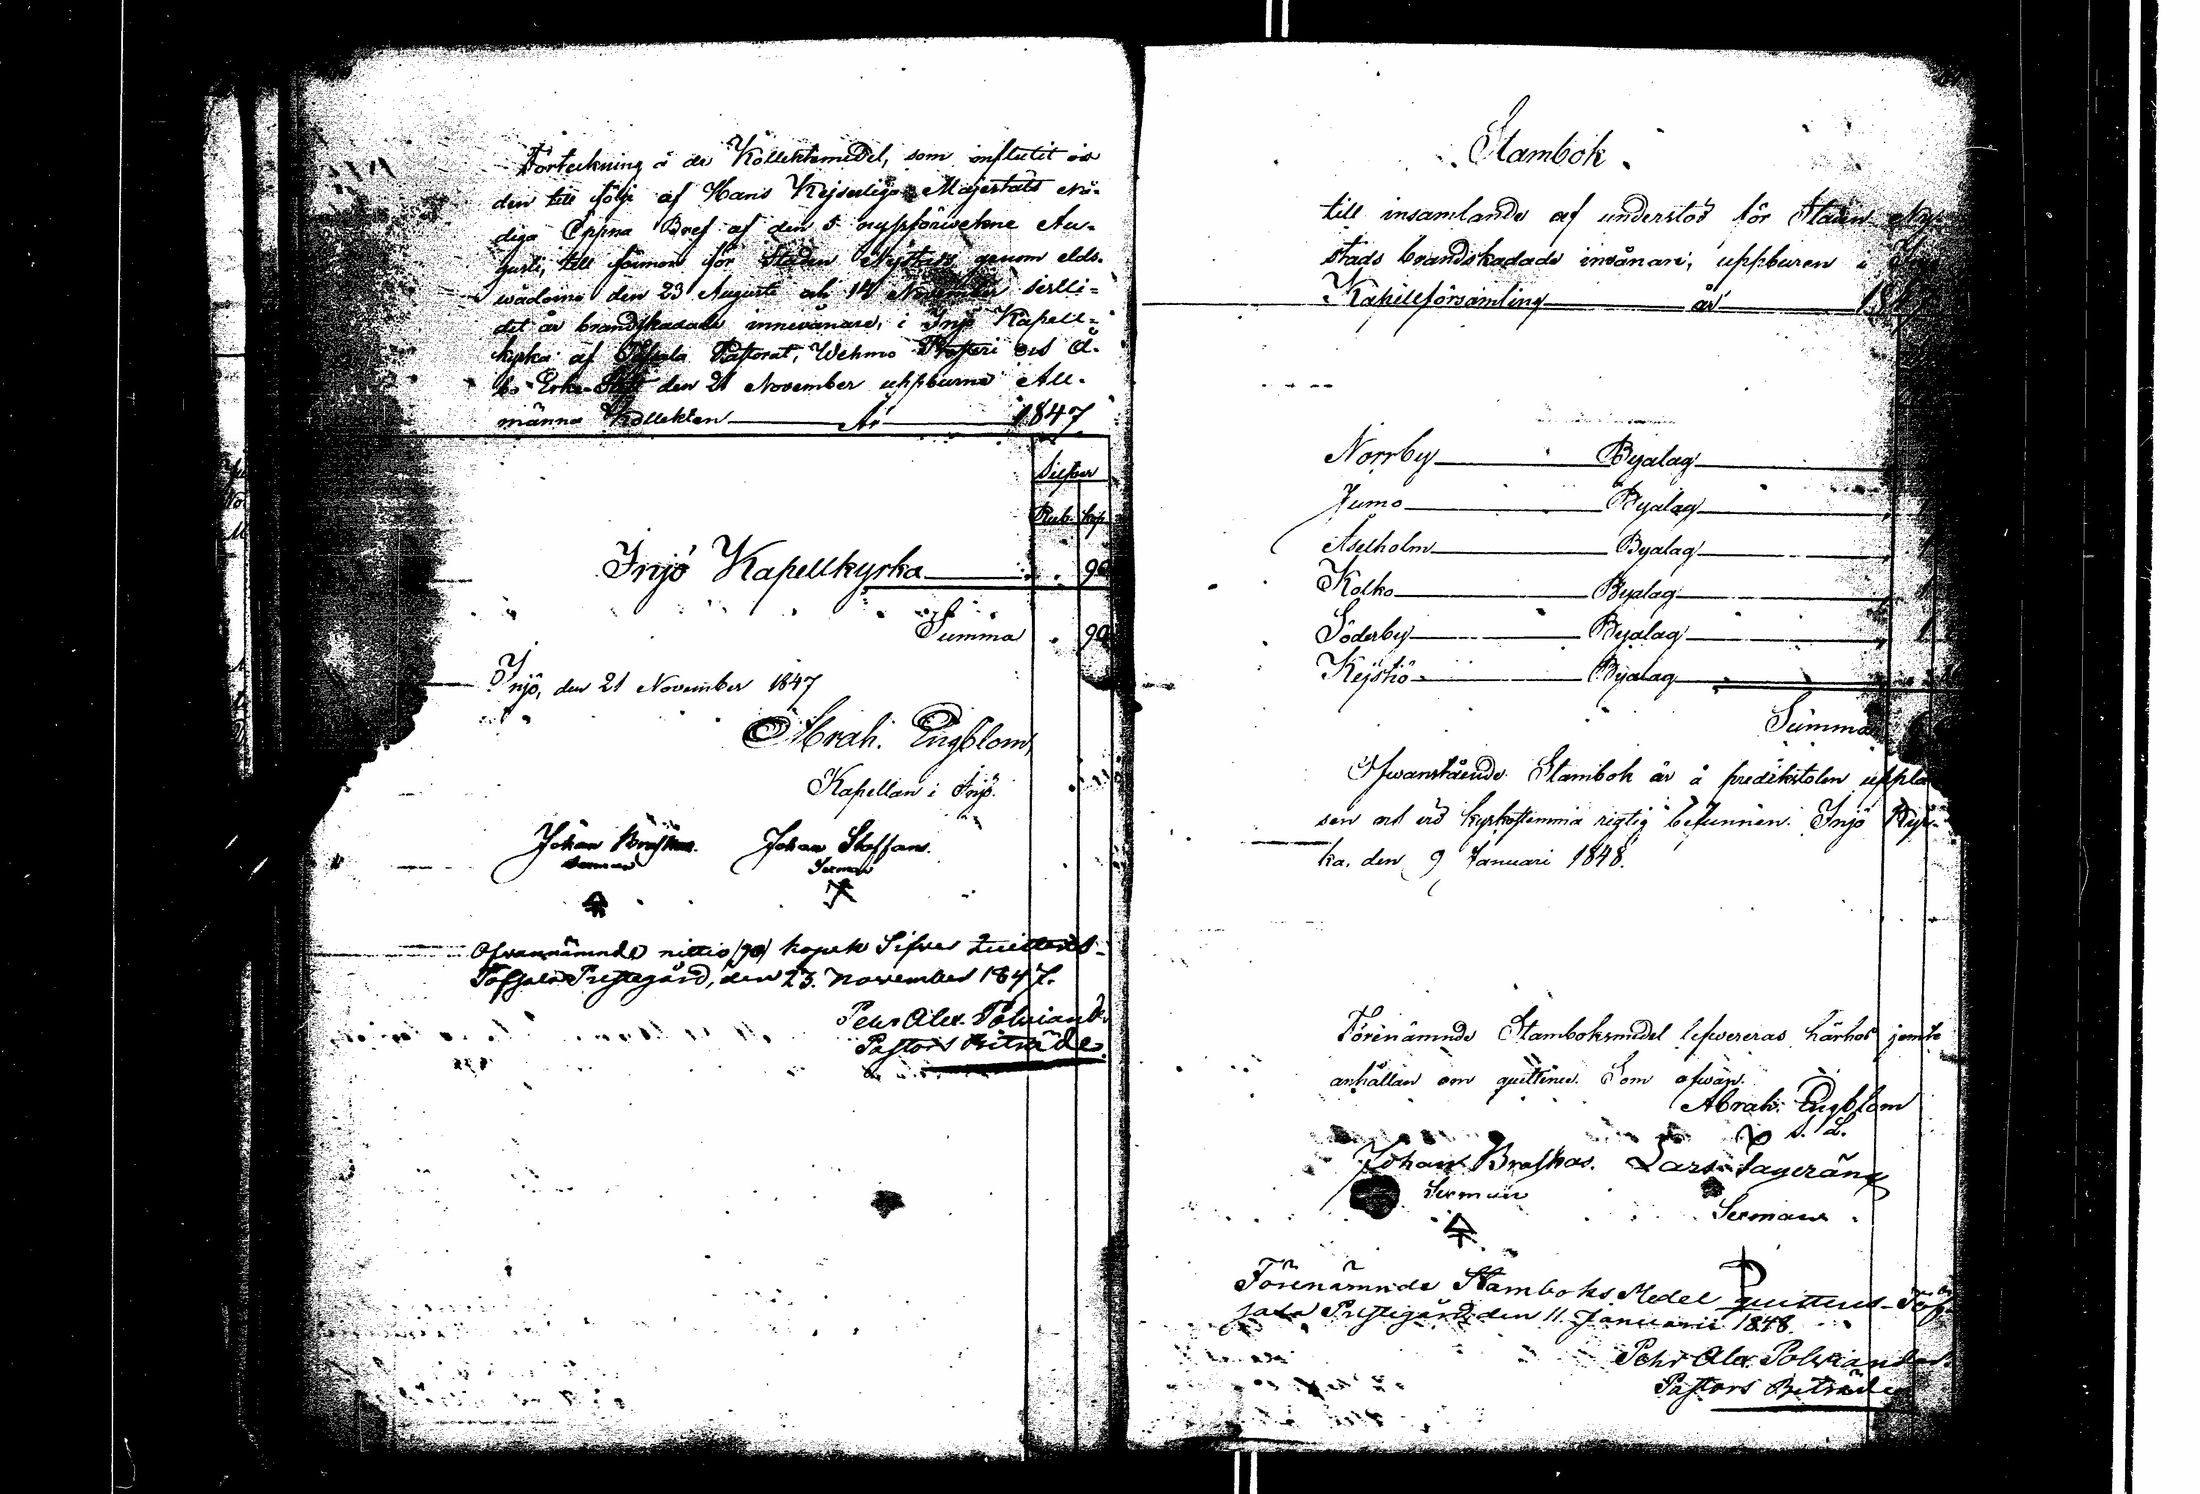 Förteckning å de Kollektmedel, som influtit vid
den till följe af Hans Kejserliga Majestäts Nå-
diga Öppna Bref af den 5 nyssförwekne Au-
gusti, till förmon för Staden Nystads genom elds-
wådorna den 23 Augusti och 14 November sistli-
det år brandskadade innevånare, i Iniö Kapell-
kyrka af Töfsala Pastorat, Wehmo Prosteri och Å-
bo Erke-Stift den 21 November uppburna All-
männa Kollekten År 1847
Silfver
Rub. kop
Iniö Kapellkyrka . 90
Summa . 90
Iniö, den 21 November 1847
Abrah. Engblom,
Kapellan i Iniö.
Johan Johan Staffans.
Sexman Sexman
Ofvannämnde nittio /90/ kopek Silfver quitteras-
Töfsala Prestegård, den 23. November 1847.
Pehr Alex. Polviander
Pastors Biträde.
Stambok
till insamlande af understöd för Staden Ny-
stads brandskadade invånare, uppburen i
Kapellförsamling år 18
Norrby Byalag
Jumo Byalag
Åselholm Byalag
Kolko Byalag
Söderby Byalag
Kejstiö Byalag
Summa
Ofwanstående Stambok är å predikstolen upplä
sen och vid kyrkostemma rigtig befunnen. Iniö Kyr-
ka, den 9 Januari 1848.
Förenämnde Stamboksmedel lefvereras härhos jemte
anhållan om quittence. Som ofwan.
Abrah. Engblom
Johan Braskas. Lars
Sexman
Sexman
Förenämnde Stamboks Medel quitteras - Töf-
sala Prestegård, den 11 Januarii 1848.
Pehr Alex. Polviander
Pastors Biträde